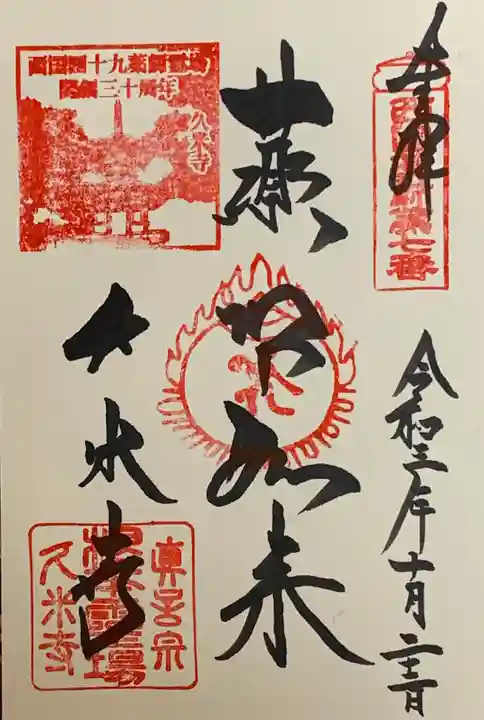 奉拝
第七番
令和三年十月二十三日
薬師如来
久米寺
西国四十九薬師霊場
開創三十周年
久米寺
真言宗
霊場
久米寺